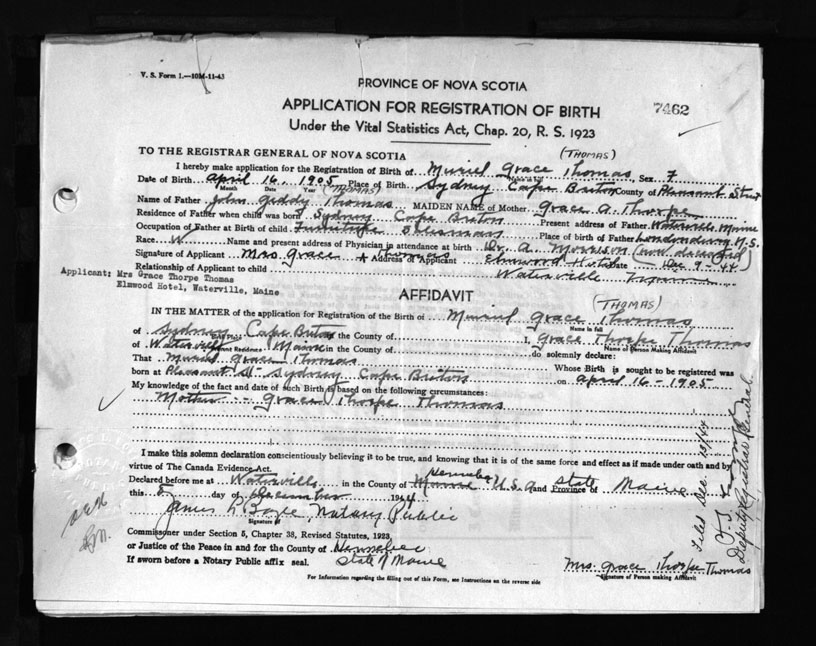 V. S. Form 1.—10M-11-43
PROVINCE OF NOVA SCOTIA
APPLICATION FOR REGISTRATION OF BIRTH
7462
Under the Vital Statistics Act, Chap. 20, R. S. 1923
TO THE REGISTRAR GENERAL OF NOVA SCOTIA
(THOMAS)
I hereby make application for the Registration of Birth of Muriel Grace Thomas, Sex F
Date of Birth April 16, 1905 Place of Birth Sydney Cape Breton County of Pleasant Street
Month Date Year (THOMAS)
Name of Father John Thomas MAIDEN NAME of Mother Grace A. Thorpe
Residence of Father when child was born Sydney Cape Breton Present address of Father Waterville Maine
Occupation of Father at Birth of child Furniture Salesman Place of birth of Father Londonderry N.S.
Race W Name and present address of Physician in attendance at birth Dr. A. Morrison (now deceased)
Signature of Applicant Mrs. Grace A Thomas Address of Applicant Elmwood Hotel Date Dec 9-44
Relationship of Applicant to child Waterville
Applicant: Mrs Grace Thorpe Thomas
Elmwood Hotel, Waterville, Maine
AFFIDAVIT
(THOMAS)
IN THE MATTER of the application for Registration of Birth of Muriel Grace Thomas
Name in full
of Sydney Cape Breton the County of I, Grace Thorpe Thomas
Name of Person Making Affidavit
of Waterville Maine in the County of do solemnly declare:
That Muriel Grace Thomas Whose Birth is sought to be registered was
born at Pleasant St- Sydney Cape Breton on April 16-1905
My knowledge of the fact and date of such Birth is based on the following circumstances:
Mother - Grace Thorpe Thomas
I make this solemn declaration conscientiously believing it to be true, and knowing that it is of the same force and effect as if made under oath and by
virtue of The Canada Evidence Act.
Kennebec
Declared before me at Waterville in the County of Maine U.S.A and State Province of Maine
this 5 day of December 1944
James L Boyle, Notary Public
Signature of
Commissioner under Section 5, Chapter 38, Revised Statutes, 1923,
or Justice of the Peace in and for the County of Kennebec
If sworn before a Notary Public affix seal. State of Maine
Mrs. Grace Thorpe Thomas
Signature of Person making Affidavit
For Information regarding the filling out of this Form, see Instructions on the reverse side
Filed Dec
Deputy Registrar General